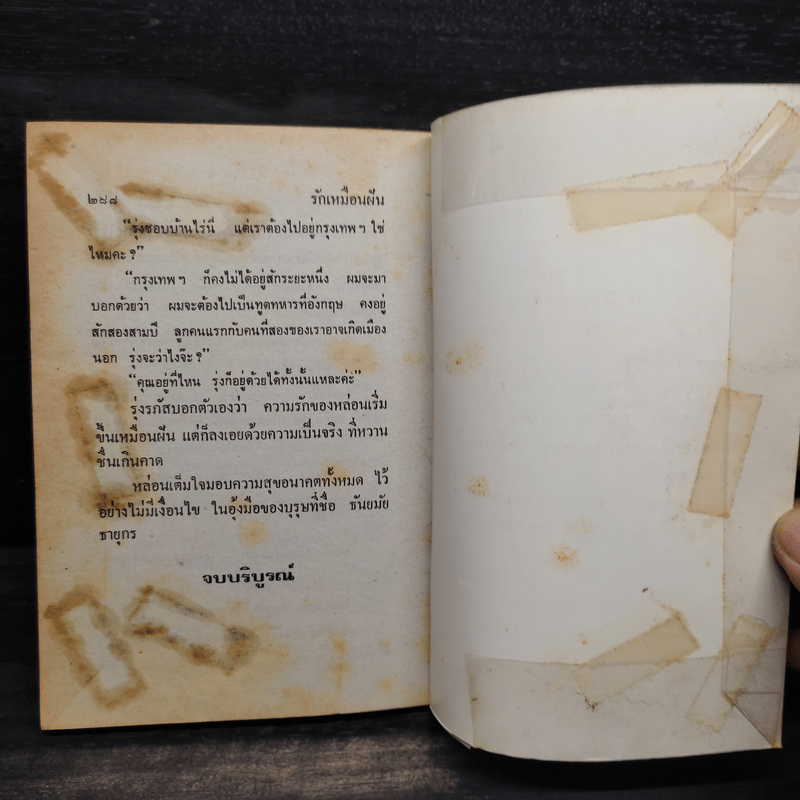 ๒๘๘ รักเหมือนฝัน
“รุ่งชอบบ้านไร่นี่ แต่เราต้องไปอยู่กรุงเทพฯ ใช่
ไหมคะ?”
“กรุงเทพฯ ก็คงไม่ได้อยู่สักระยะหนึ่ง ผมจะมา
บอกด้วยว่า ผมจะต้องไปเป็นทูตทหารที่อังกฤษ คงอยู่
สักสองสามปี ลูกคนแรกกับคนที่สองของเราอาจเกิดเมือง
นอก รุ่งจะว่าไงจ๊ะ?”
“คุณอยู่ที่ไหน รุ่งก็อยู่ด้วยได้ทั้งนั้นแหละค่ะ”
รุ่งรภัสบอกตัวเองว่า ความรักของหล่อนเริ่ม
ขึ้นเหมือนฝัน แต่ก็ลงเอยด้วยความเป็นจริง ที่หวาน
ชื่นเกินคาด
หล่อนเต็มใจมอบความสุขอนาคตทั้งหมด ไว้
อย่างไม่มีเงื่อนไข ในอุ้งมือของบุรุษที่ชื่อ ธันยมัย
ธายุกร
จบบริบูรณ์